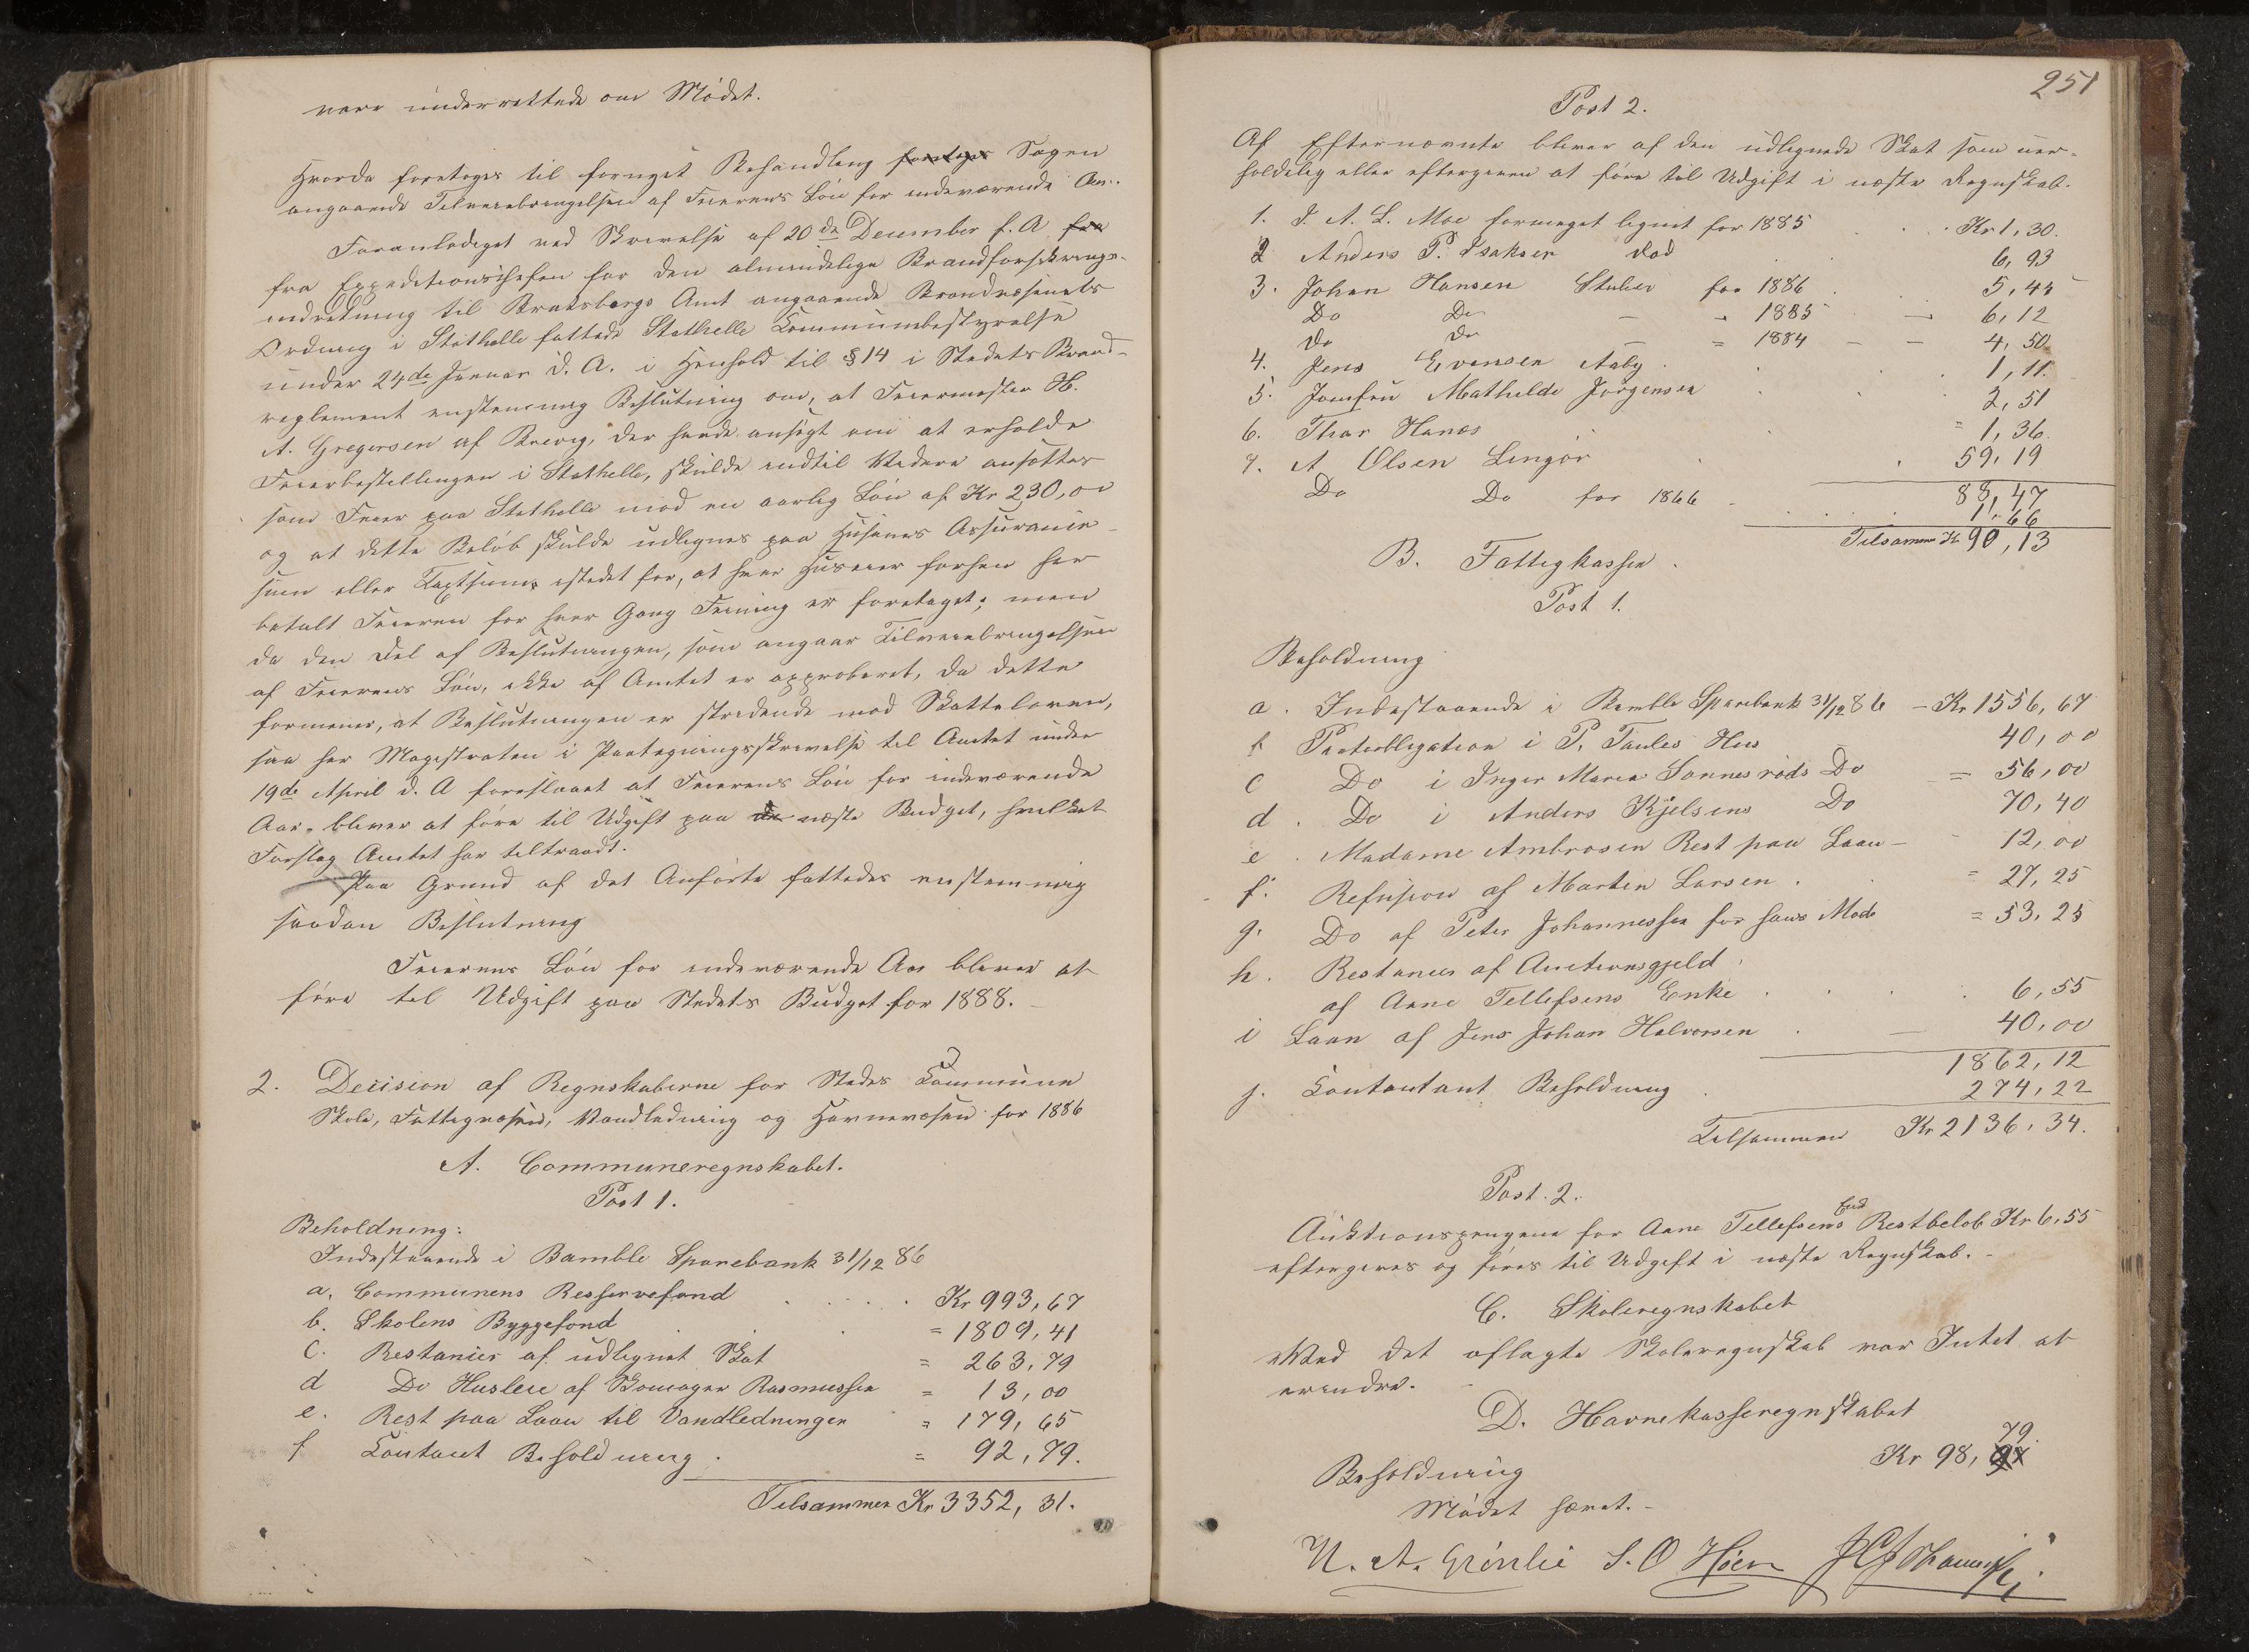 vare underrettede om Mødet.
Hvorda foretoges til fornyet Behandling foretoges Sagen
angaaende Tilveiebringelsen af Feierens Løn for indeværende Aar.
Foranlediget ved Skrivelse af 20de December f. A. fra
fra Expeditionschefen for den almindelige Brandforsikrings-
indretning til Bratsbergs Amt angaaende Brandvæsenets
Ordning i Stathelle fattede Stathelle Communebestyrelse
under 24de Januar d. A. i Henhold til § 14 i Stedets Brand-
reglement enstemmig Beslutning om, at Feiermester H.
A. Gregersen af Brevig, der havde ansøgt om at erholde
Feierbestillingen i Stathelle, skulde indtil Videre ansættes
som Feier paa Stathelle mod en aarlig Løn af Kr 230,00
og at dette Beløb skulde udlignes paa Husenes Assurance-
sum eller Taxtsum, istedet for, at hver Huseier forhen har
betalt Feieren for hver Gang Feining er foretaget; men
da den Del af Beslutningen, som angaar Tilveiebringelsen
af Feierens Løn, ikke af Amtet er approberet, da dette
formener, at Beslutningen er stridende mod Skatteloven,
saa har Magistraten i Paategningsskrivelse til Amtet under
19de April d. A foreslaaet at Feierens Løn for indeværende
Aar bliver at føre til Udgift paa de næste Budget, hvilket
Forslag Amtet har tiltraadt.
Paa Grund af det Anførte fattedes enstemmig
saadan Beslutning
Feierens Løn for indeværende Aar bliver at
føre til Udgift paa Stedets Budget for 1888.
2. Decision af Regnskaberne for Stedes Commune
Skole, Fattigvæsen, Vandledning og Havnevæsen for 1886
A. Communeregnskabet.
Post 1.
Beholdning:
Indestaaende i Bamble Sparebank 31/12 86
a. Communens Resservefond . . . . Kr 993,67
b. Skolens Byggefond . . = 1809,41
c. Restancer af udlignet Skat = 263,79
d Do Husleie af Skomager Rasmussen = 13,00
e. Rest paa Laan til Vandledningen = 179,65
f Contant Beholdning . = 92,79.
Tilsammen Kr 3352,31.
251
Post 2.
Af Efternævnte bliver af den udlignede Skat som uer-
holdelig eller eftergiven at føre til Udgift i næste Regnskab.
1. J. A. L. Moe formeget lignet for 1885 . . Kr 1,30.
2 Anders P. Isaksen død . . 6,93
3. Johan Hansen Stuber for 1886 . . 5,45
Do Do — - 1885 — 6,12
Do Do — = 1884 — — 4,50
4. Jens Evensen Aaby . . . 1,11.
5. Jomfru Mathilde Jørgensen . . 2,51
6. Thor Hanes . = 1,36.
7. A Olsen Lingør . . 59,19
88,47
Do Do for 1866 . . . . 1,66
Tilsammen Kr 90,13
B. Fattigkassen.
Post 1.
Beholdning
a. Indestaaende i Bamble Sparebank 31/12 86 — Kr 1556,67
b Panteobligation i P. Taules Hus 40,00
c Do i Inger Maria Sannesrøds Do = 56,00
d. Do i Anders Kjelsens Do 70,40
e. Madame Ambrosen Rest paa Laan — 12,00
f. Refusion af Martin Larsen . = 27,25
g. Do af Peter Johannessen for hans Moder = 53,25
h. Restance af Auctionsgjeld
af Aane Tellefsens Enke . . . . 6,55
i Laan af Jens Johan Halvorsen . — 40,00
1862,12
j. Contantant Beholdning . 274,22
Tilsammen Kr 2136,34.
Post. 2.
Auktionspengene for Aane Tellefsens End Restbeløb Kr 6,55
eftergives og føres til Udgift i næste Regnskab. -
C. Skoleregnskabet
Ved det aflagte Skoleregnskab var Intet at
erindre. -
D. Havnekasseregnskabet
Beholdning Kr 98, 79.
Mødet hævet. -
N. A. Grinlie S. O Høen